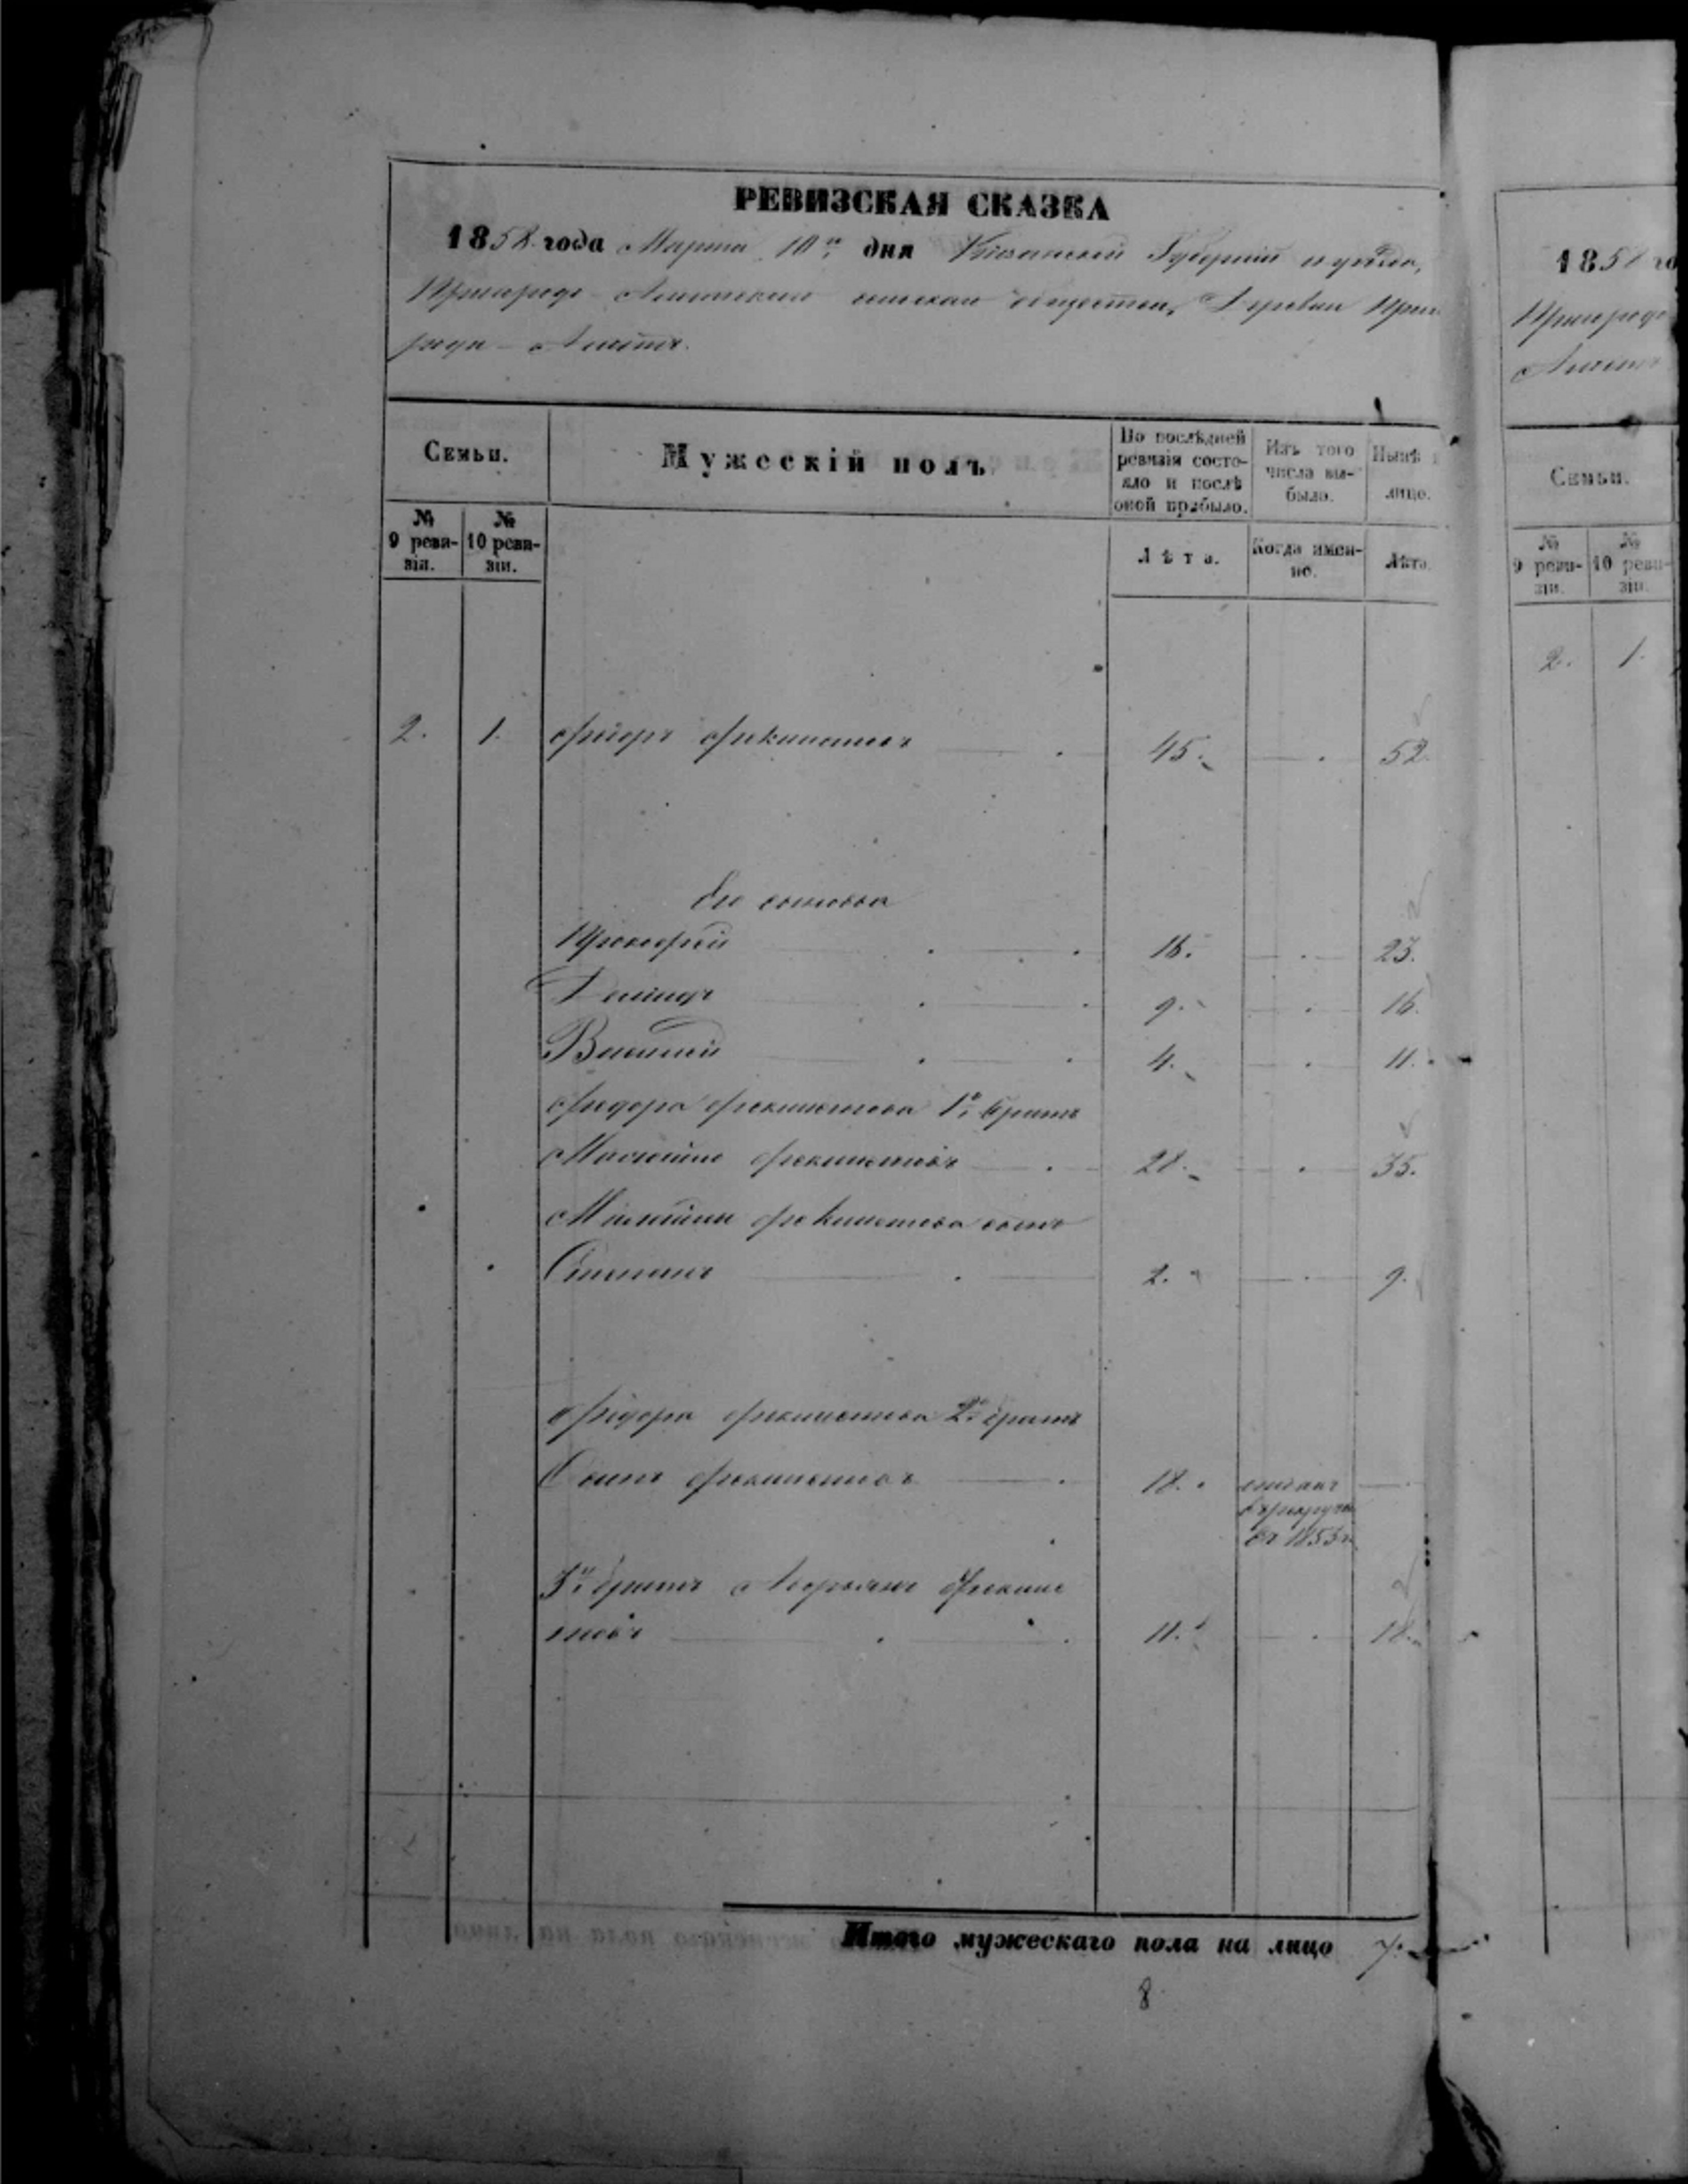 РЕВИЗСКАЯ СКАЗКА
1858 года Марта 10го дня Казанской Губернии и уезда,
общества, Деревни
Семьи.
Мужескій полъ
По послѣдней ревизіи состояло и послѣ оной прибыло.
Изъ того числа выбыло.
Нынѣ
лицо.
№ 9 ревизіи.
№ 10 ревизіи.
Лѣта.
Когда именно.
Лѣта.
2. 1. Федоръ Феклистовъ 45. 52.
Его сыновья
Прокофей 16. 23.
Демидъ 9. 16.
Василей 4. 11.
Федора Феклистова 1й братъ
Феклистовъ 28. 35.
Феклистова сынъ
Степанъ 2. 9.
Федора Феклистова 2й братъ
Осипъ Феклистовъ 18.
въ рекруты
въ 1853г.
3й братъ Феклис
товъ 11. 18.
Итого мужескаго пола на лицо 7.
8
185
Семьи.
№ 9 ревизіи.
№ 10 ревизіи.
2. 1.